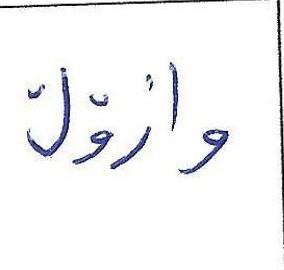 وازوّلّ